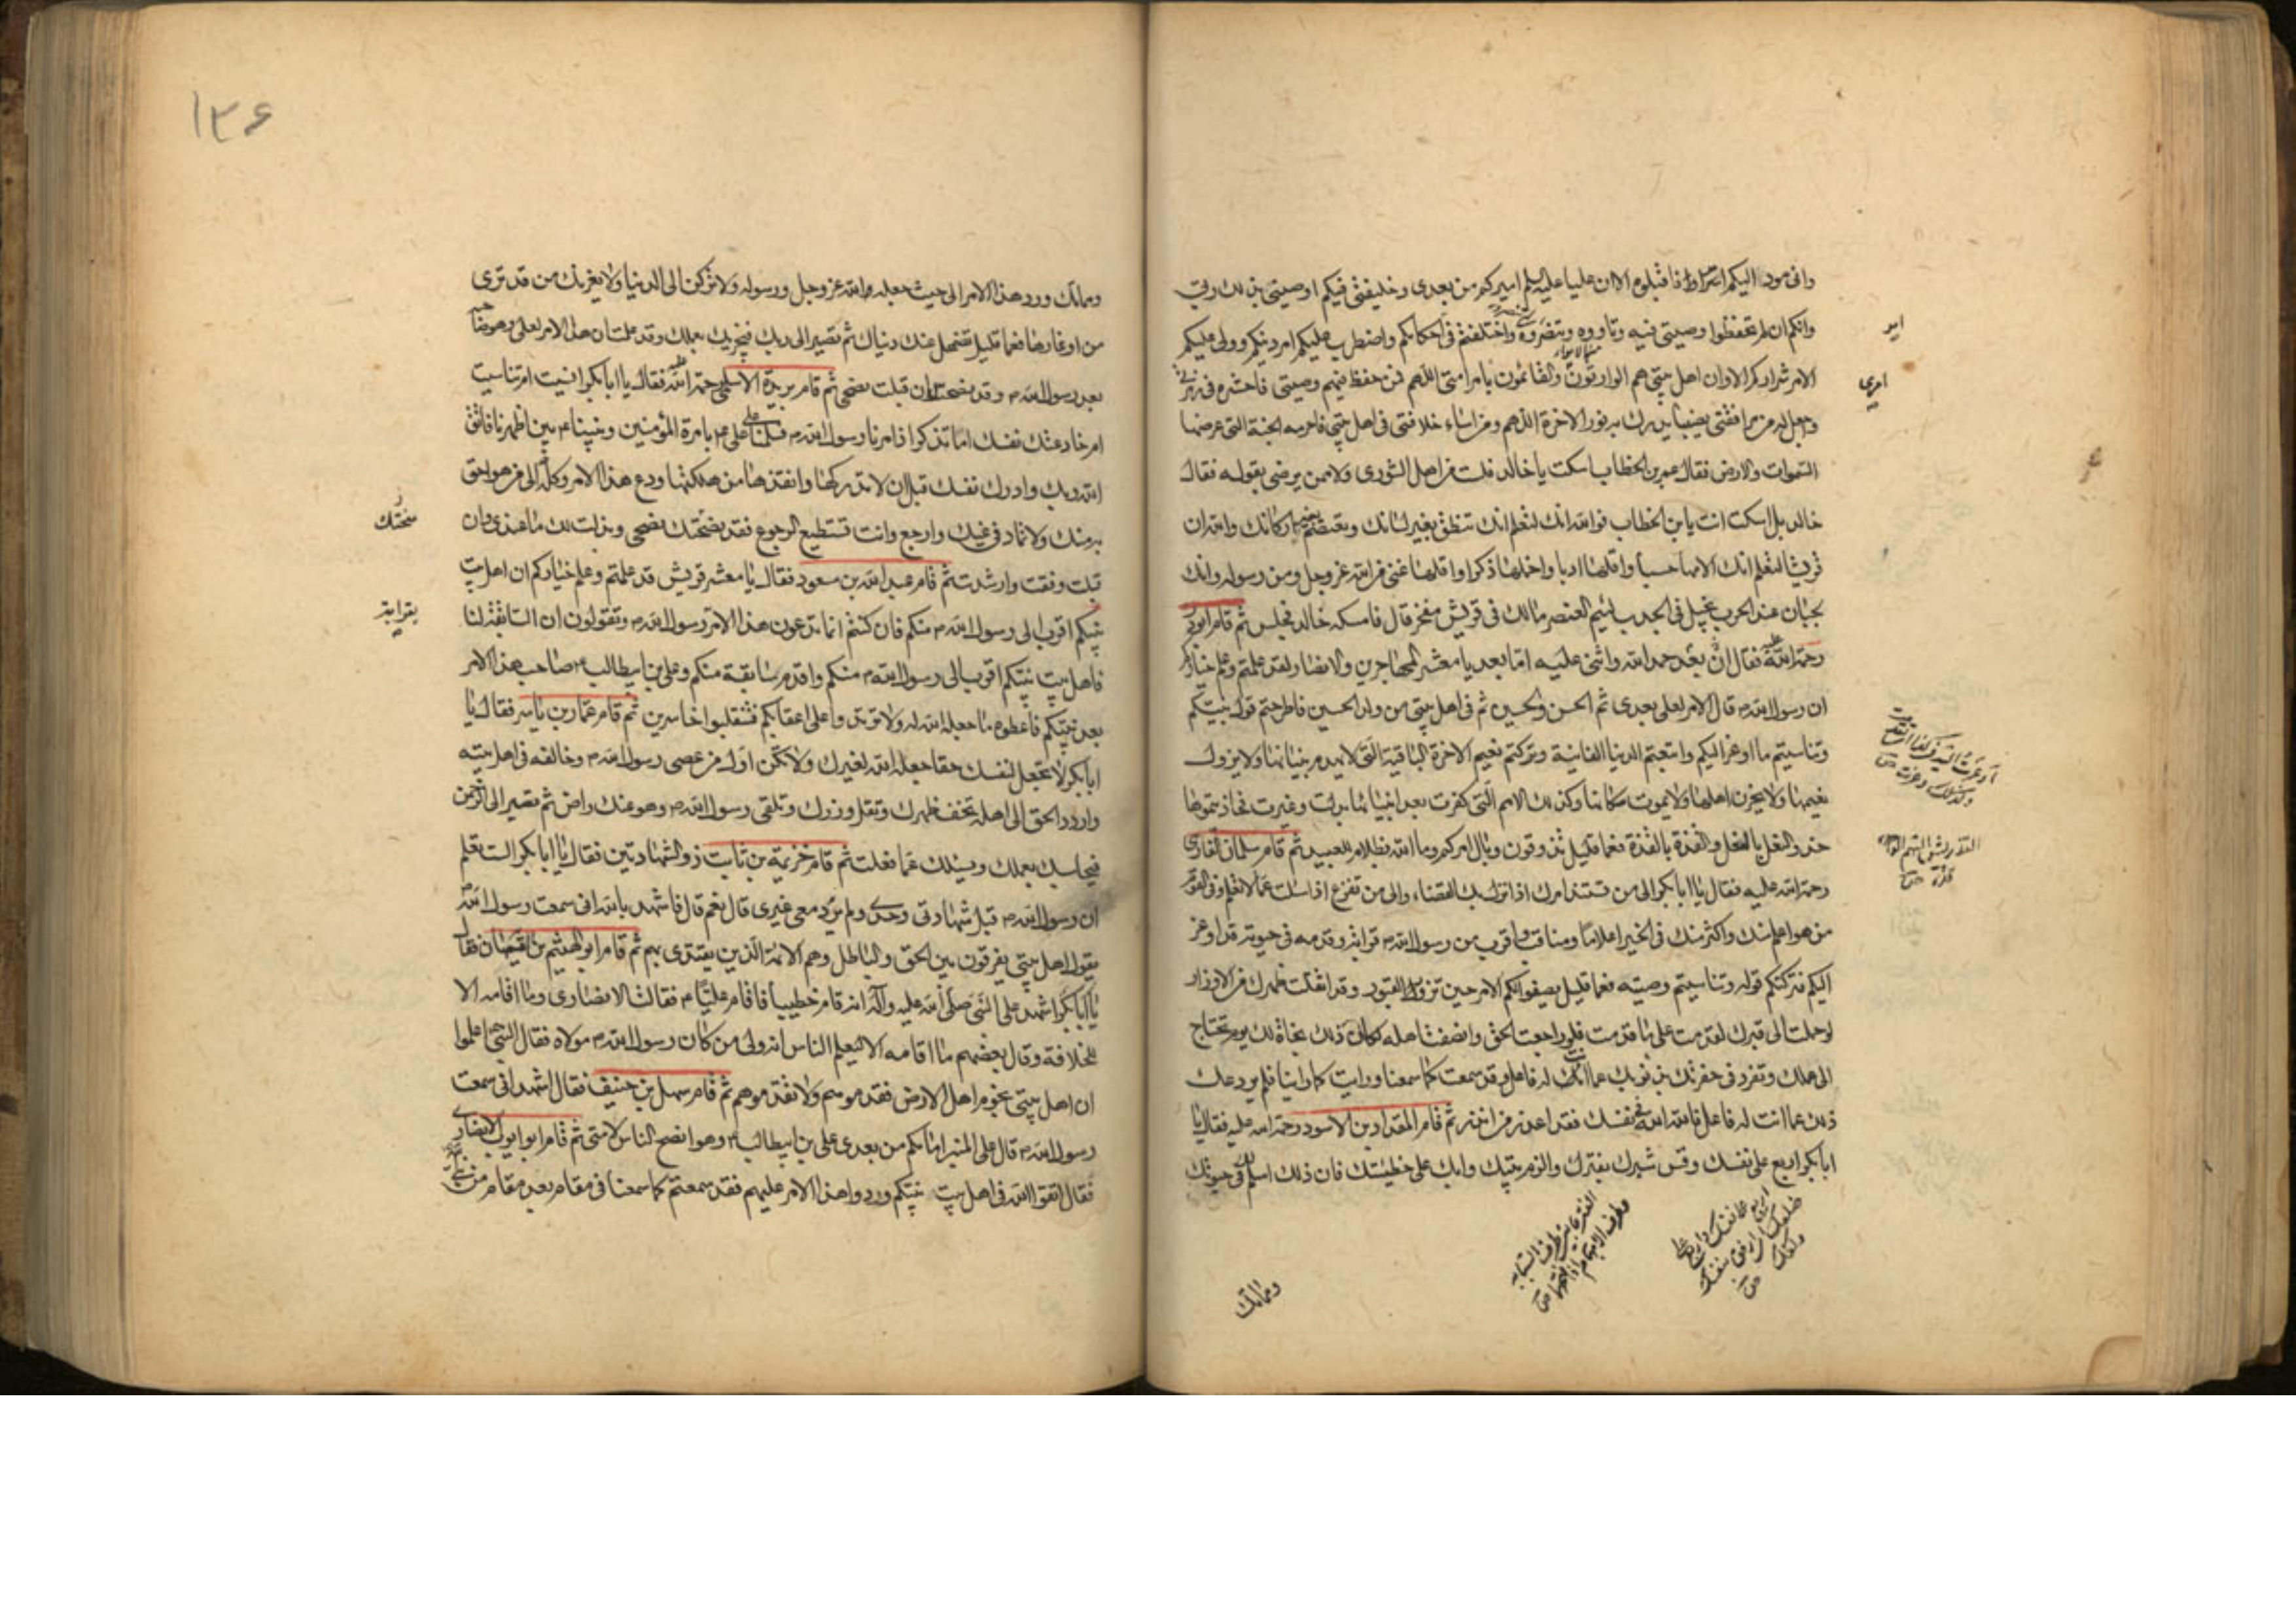 وانی مود الیکم سرا فاقبلوه الا ان علیا علیه السلم امیرکم من بعدی وخلیفتی فیکم اوصیتی بذلک ربی
وانکم ان لم تحفظوا وصیتی فیه وتاووه وتنصروه واختلفتم فی احکامکم واضطرب علیکم امر دینکم وولی علیکم
الامر شرارکم الا وان اهل بیتی هم الوارثون والقائمون بامر امتی اللهم فمن حفظ فیهم وصیتی فاحشره فی زمرتی
واجعل له من مرافقتی نصیبا یدرک به فوز الاخرة اللهم ومن اساء خلافتی فی اهل بیتی فاحرمه الجنة التی عرضها
السموات والارض فقال عمر بن الخطاب اسکت یا خالد فلست من اهل الشوری ولا ممن یرضی بقوله فقال
خالد بل اسکت انت یا بن الخطاب فوالله انک لتعلم انک تنطق بغیر لسانک وتعتصم بغیر ارکانک والله ان
قریشا لتعلم انک الامها حسبا واقلها ادبا واخملها ذکرا واقلها غنی من الله عز وجل ومن رسوله وانک
لجبان عند الحرب بخیل فی الجدب لئیم العنصر مالک فی قریش مفخر قال فاسکته خالد فجلس ثم قام ابوذر
رحمة الله علیه فقال ان بعد حمد الله واثنی علیه اما بعد یا معشر المهاجرین والانصار لقد علمتم وعلم خیارکم
ان رسول الله ص قال الامر لعلی بعدی ثم الحسن والحسین ثم فی اهل بیتی من ولد الحسین فاطرحتم قول نبیکم
وتناسیتم ما اوعز الیکم واتبعتم الدنیا الفانیة وترکتم نعیم الاخرة الباقیة التی لا یهدم بنیانها ولا یزول
نعیمها ولا یحزن اهلها ولا یموت سکانها وکذلک الامم التی کفرت بعد انبیائها بدلت وغیرت فحاذیتموها
حذو النعل بالنعل والقذة بالقذة فعما قلیل تذوقون وبال امرکم وما الله بظلام للعبید ثم قام سلمان الفارسی
رحمة الله علیه فقال یا ابا بکر الی من تستند امرک اذا نزل بک القضاء والی من تفزع اذا سئلت عما لا تعلم وفی القوم
من هو اعلم منک واکثر منک فی الخیر اعلاما ومناقب واقرب من رسول الله ص قرابة وقدمه فی حیوته قد اوعز
الیکم فترکتم قوله وتناسیتم وصیته فعما قلیل یصفو لکم الامر حین تزوروا القبور وقد اثقلت ظهرک من الاوزار
لو حملت الی قبرک لقدمت علی ما قدمت فلو راجعت الحق وانصفت اهله لکان ذلک نجاة لک یوم تحتاج
الی عملک وتفرد فی حفرتک بذنوبک عما انت له فاعل وقد سمعت کما سمعنا ورایت کما راینا فلم یردعک
ذلک عما انت له فاعل فالله الله فی نفسک فقد اعذر من انذر ثم قام المقداد بن الاسود رحمة الله علیه فقال یا
ابا بکر اربع علی نفسک وقس شبرک بفترک والزم بیتک وابک علی خطیئتک فان ذلک اسلم لک فی حیوتک
ومماتک
امیر
امری
۱۳۶
ومماتک ورد هذا الامر الی حیث جعله الله عز وجل ورسوله ولا ترکن الی الدنیا ولا یغرنک من قد تری
من اوغارها فعما قلیل تضمحل عنک دنیاک ثم تصیر الی ربک فیجزیک بعملک وقد علمت ان هذا الامر لعلی وهو صاحبه
بعد رسول الله ص وقد نصحتک ان قبلت نصحی ثم قام بریدة الاسلمی رحمة الله علیه فقال یا ابا بکر انسیت ام تناسیت
ام خادعتک نفسک اما تذکر اذ امرنا رسول الله ص فسلمنا علی علی ع بامرة المؤمنین ونبینا ع بین اظهرنا فاتق
الله ربک وادرک نفسک قبل ان لا تدرکها وانقذها من هلکتها ودع هذا الامر وکله الی من هو احق
به منک ولا تماد فی غیک وارجع وانت تستطیع الرجوع فقد نصحتک نصحی وبذلت لک ما عندی فان
قبلت وفقت وارشدت ثم قام عبد الله بن مسعود فقال یا معشر قریش قد علمتم وعلم خیارکم ان اهل بیت
نبیکم اقرب الی رسول الله ص منکم فان کنتم انما تدعون هذا الامر برسول الله ص وتقولون ان السابقة لنا
فاهل بیت نبیکم اقرب الی رسول الله ص منکم واقدم سابقة منکم وعلی بن ابیطالب ع صاحب هذا الامر
بعد نبیکم فاعطوه ما جعله الله له ولا ترتدوا علی اعقابکم فتنقلبوا خاسرین ثم قام عمار بن یاسر فقال یا
ابا بکر لا تجعل لنفسک حقا جعله الله لغیرک ولا تکن اول من عصی رسول الله ص وخالفه فی اهل بیته
واردد الحق الی اهله تخف ظهرک وتقل وزرک وتلقی رسول الله ص وهو عنک راض ثم تصیر الی الرحمن
فیحاسبک بعملک ویسئلک عما فعلت ثم قام خزیمة بن ثابت ذو الشهادتین فقال یا ابا بکر الست تعلم
ان رسول الله ص قبل شهادتی وحدی ولم یرد معی غیری قال نعم قال فاشهد بالله انی سمعت رسول الله ص
یقول اهل بیتی یفرقون بین الحق والباطل وهم الائمة الذین یقتدی بهم ثم قام ابو الهیثم بن التیهان فقال
یا ابا بکر اشهد علی النبی صلی الله علیه وآله انه قام خطیبا فاقام علیا ع فقالت الانصار وما اقامه الا
للخلافة وقال بعضهم ما اقامه الا لیعلم الناس انه ولی من کان رسول الله ص مولاه فقال النبی ص اعلموا
ان اهل بیتی نجوم اهل الارض فقدموهم ولا تقدموهم ثم قام سهل بن حنیف فقال اشهد انی سمعت
رسول الله ص قال علی المنبر امامکم من بعدی علی بن ابیطالب ع وهو انصح الناس لامتی ثم قام ابو ایوب الانصاری
فقال اتقوا الله فی اهل بیت نبیکم وردوا هذا الامر علیهم فقد سمعتم کما سمعنا فی مقام بعد مقام من نبی